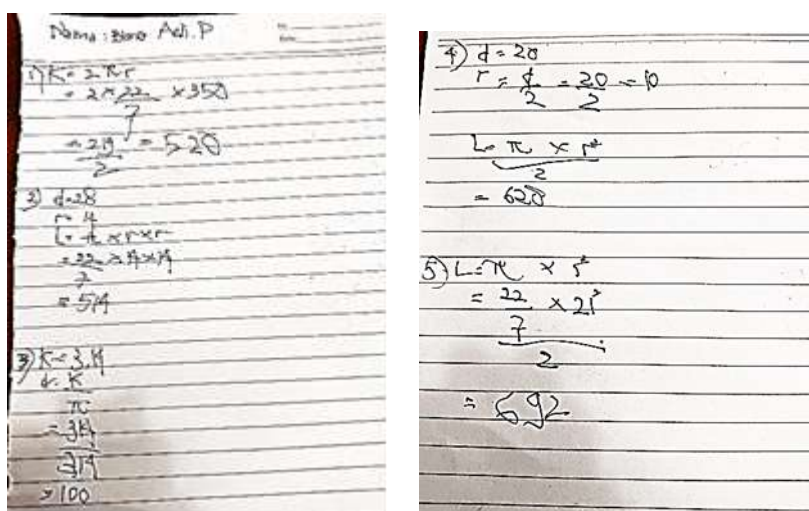 Nama : Adi. P
1) K = 2 πr
= 2 × 22/7 × 350
= /2 = 520
2) d = 28
r = 14
L = π × r × r
= 22/7 × 14 × 14
= 514
3) K = 3.14
d = K/π
= 314/314
= 100
4) d = 20
r = d/2 = 20/2 = 10
L = π × r²/2
= 628
5) L = π × r²
= 22/7 × 21²/2
= 692